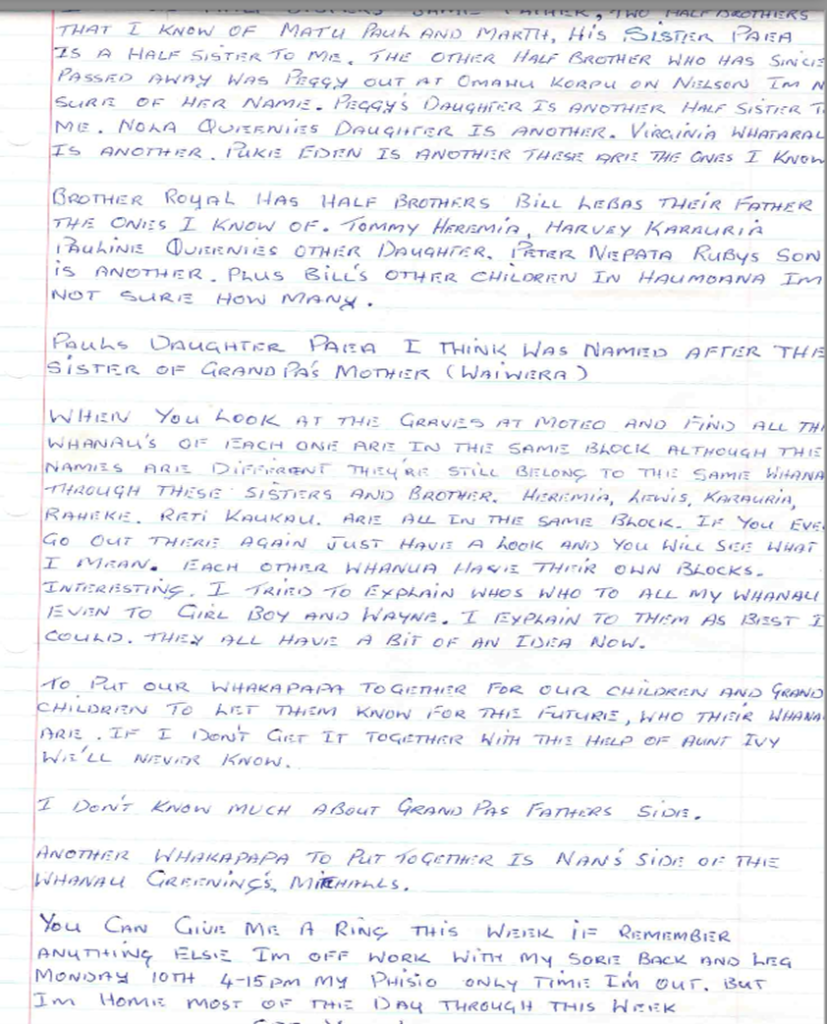 HALF SISTERS SAME FATHER, TWO HALF BROTHERS
THAT I KNOW OF MATU PAUL AND MARTH, HIS SISTER PAEA
IS A HALF SISTER TO ME. THE OTHER HALF BROTHER WHO HAS SINCE
PASSED AWAY WAS PEGGY OUT AT OMAHU KORPU ON NELSON IM N
SURE OF HER NAME. PEGGY'S DAUGHTER IS ANOTHER HALF SISTER T
ME. NOLA QUEENIES DAUGHTER IS ANOTHER. VIRGINIA WHATARAU
IS ANOTHER. PUKE EDEN IS ANOTHER THESE ARE THE ONES I KNOW
BROTHER ROYAL HAS HALF BROTHERS BILL LEBAS THEIR FATHER
THE ONES I KNOW OF. TOMMY HEREMIA, HARVEY KARAURIA
PAULINE QUEENIES OTHER DAUGHTER. PETER NEPATA RUBYS SON
IS ANOTHER. PLUS BILL'S OTHER CHILDREN IN HAUMOANA IM
NOT SURE HOW MANY.
PAULS DAUGHTER PAEA I THINK WAS NAMED AFTER THE
SISTER OF GRANDPA'S MOTHER (WAIWERA)
WHEN YOU LOOK AT THE GRAVES AT MOTEO AND FIND ALL TH
WHANAU'S OF EACH ONE ARE IN THE SAME BLOCK ALTHOUGH THE
NAMES ARE DIFFERENT THEY'RE STILL BELONG TO THE SAME WHANA
THROUGH THESE SISTERS AND BROTHER. HEREMIA, LEWIS, KARAURIA,
RAHEKE. RETI KAUKAU. ARE ALL IN THE SAME BLOCK. IF YOU EVE
GO OUT THERE AGAIN JUST HAVE A LOOK AND YOU WILL SEE WHAT
I MEAN. EACH OTHER WHANUA HAVE THEIR OWN BLOCKS.
INTERESTING. I TRIED TO EXPLAIN WHOS WHO TO ALL MY WHANAU
EVEN TO GIRL BOY AND WAYNE. I EXPLAIN TO THEM AS BEST I
COULD. THEY ALL HAVE A BIT OF AN IDEA NOW.
TO PUT OUR WHAKAPAPA TOGETHER FOR OUR CHILDREN AND GRAND
CHILDREN TO LET THEM KNOW FOR THE FUTURE, WHO THEIR WHANA
ARE. IF I DON'T GET IT TOGETHER WITH THE HELP OF AUNT IVY
WE'LL NEVER KNOW.
I DON'T KNOW MUCH ABOUT GRANDPAS FATHERS SIDE.
ANOTHER WHAKAPAPA TO PUT TOGETHER IS NAN'S SIDE OF THE
WHANAU GREENING'S, MITCHALLS.
YOU CAN GIVE ME A RING THIS WEEK IF REMEMBER
ANYTHING ELSE IM OFF WORK WITH MY SORE BACK AND LEG
MONDAY 10TH 4-15PM MY PHISIO ONLY TIME I'M OUT. BUT
IM HOME MOST OF THE DAY THROUGH THIS WEEK